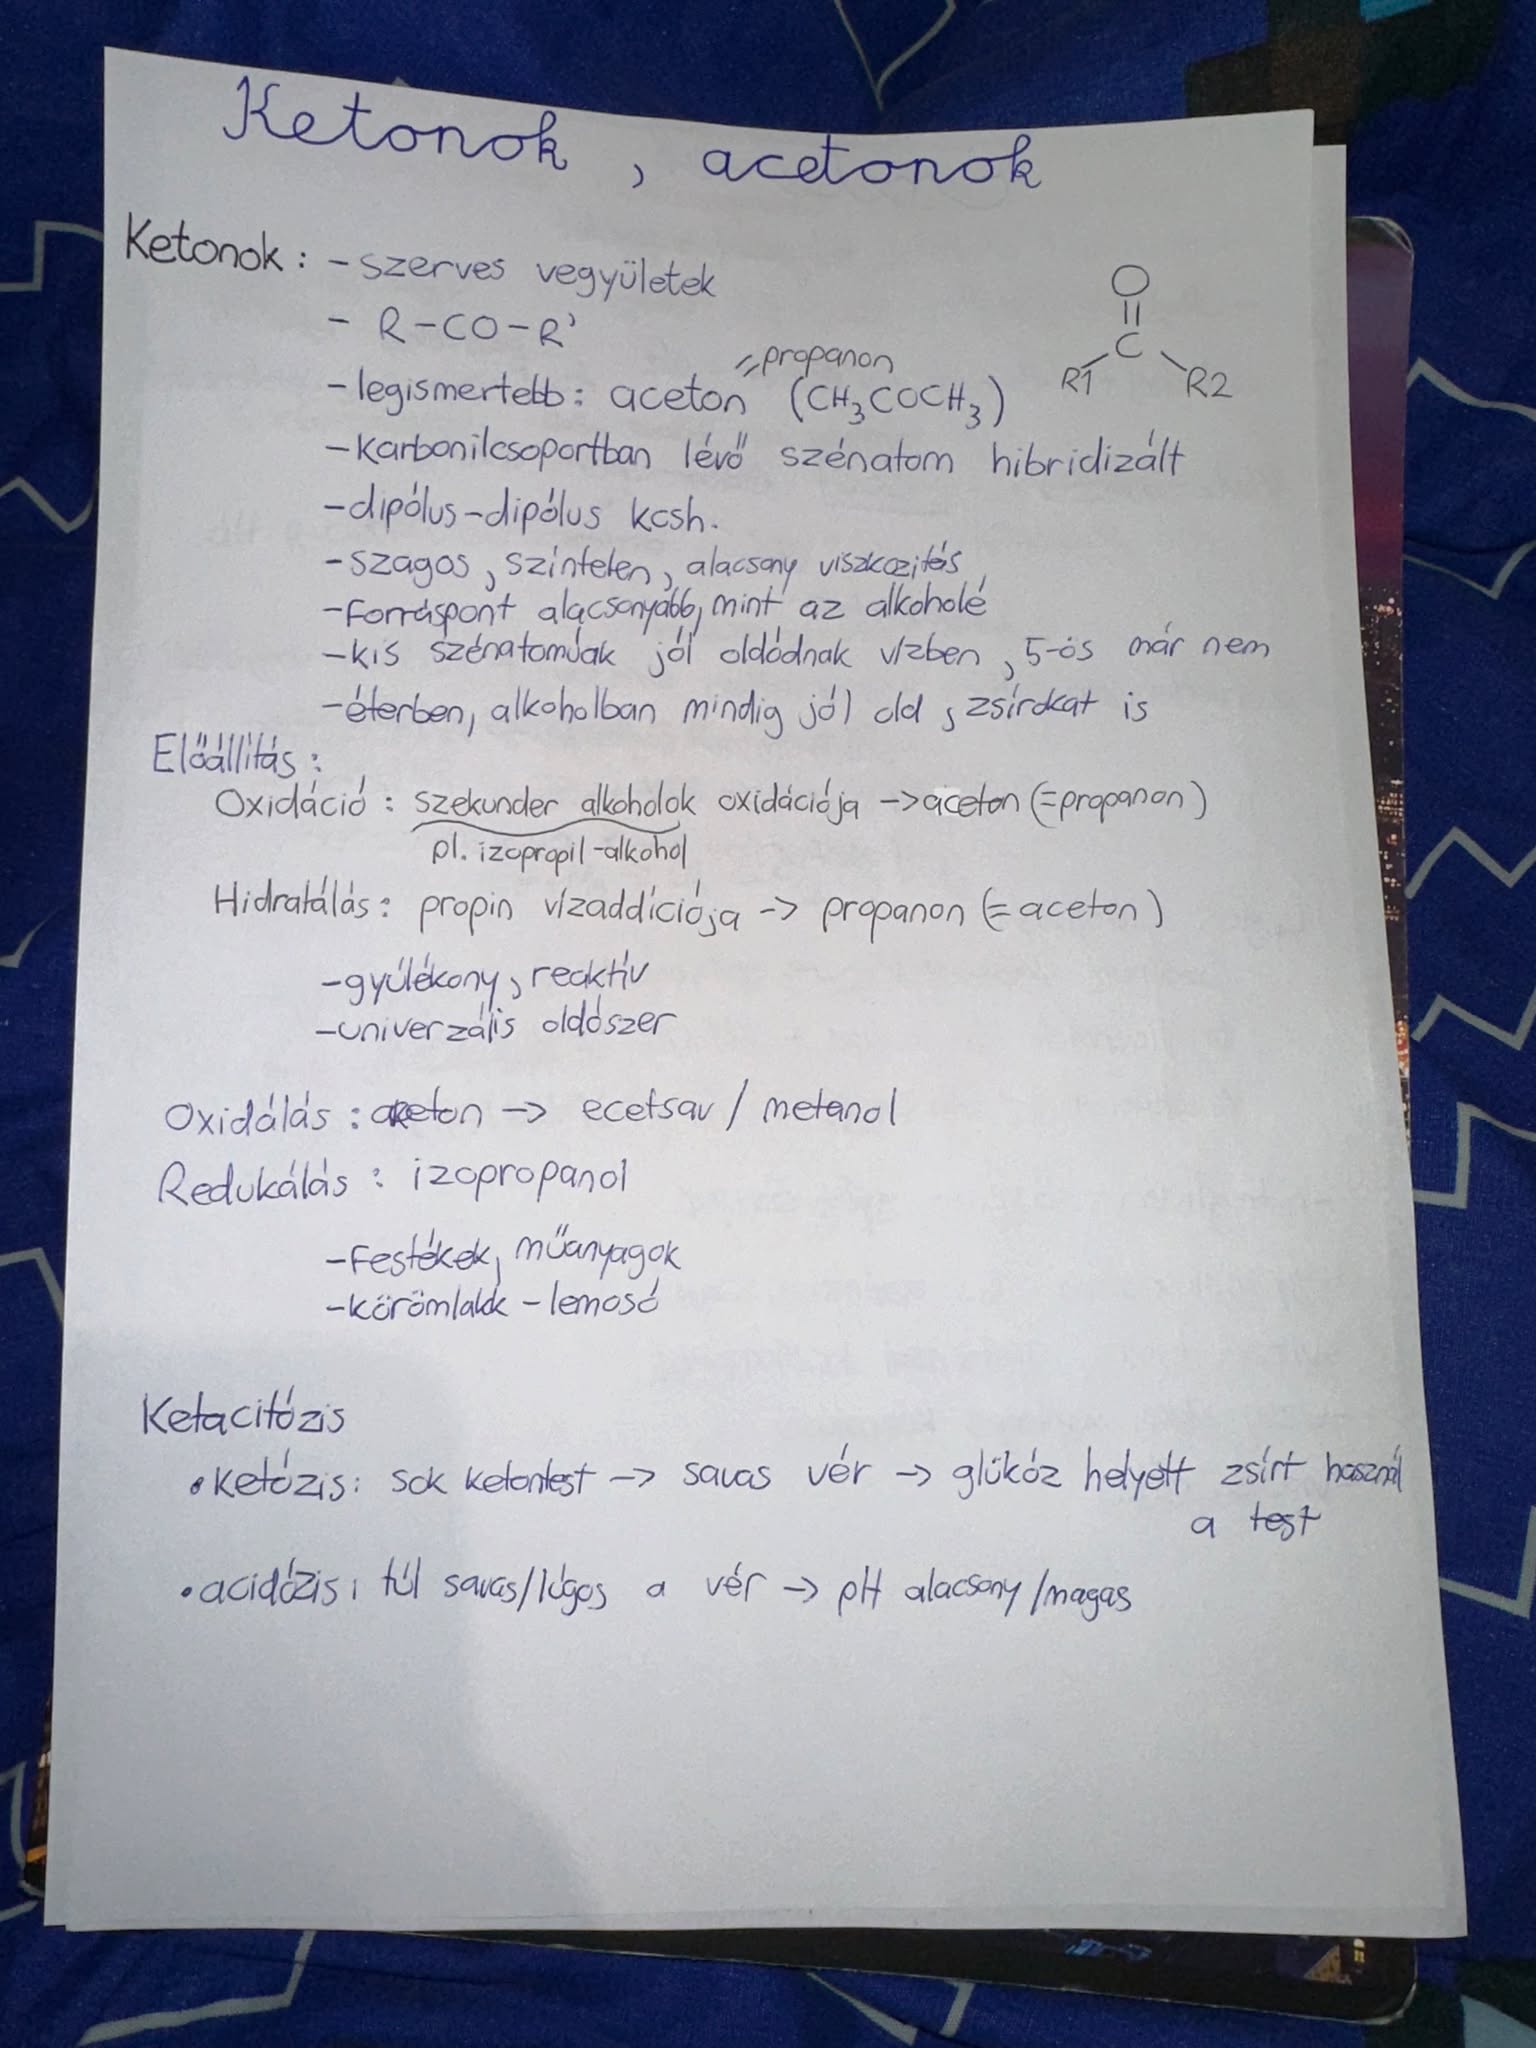 Ketonok, acetonok
Ketonok: - szerves vegyületek
- R-CO-R'
O
||
C
R1 R2
=propanon
- legismertebb: aceton (CH₃COCH₃)
- karbonilcsoportban lévő szénatom hibridizált
- dipólus-dipólus kcsh.
- szagos, színtelen, alacsony viszkozitás
- forráspont alacsonyabb, mint az alkoholé
- kis szénatomúak jól oldódnak vízben, 5-ös már nem
- éterben, alkoholban mindig jól old, zsírokat is
Előállítás:
Oxidáció: szekunder alkoholok oxidációja -> aceton (=propanon)
pl. izopropil-alkohol
Hidratálás: propin vízaddíciója -> propanon (=aceton)
- gyúlékony, reaktív
- univerzális oldószer
Oxidálás: aceton -> ecetsav / metanol
Redukálás: izopropanol
- festékek, műanyagok
- körömlakk-lemosó
Ketacitózis
• ketózis: sok ketontest -> savas vér -> glükóz helyett zsírt használ
a test
• acidózis: túl savas/lúgos a vér -> pH alacsony/magas